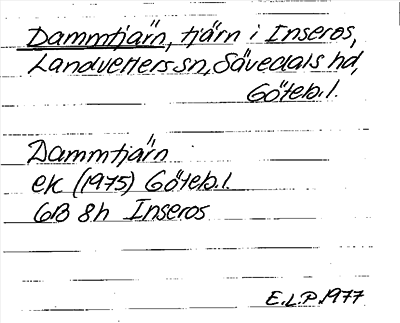 Dammtjärn, tjärn i Inseros,
Landvetters sn, Sävedals hd,
Göteb.l.
Dammtjärn
ek (1975) Göteb.l.
6B 8h Inseros
E.L.P. 1977